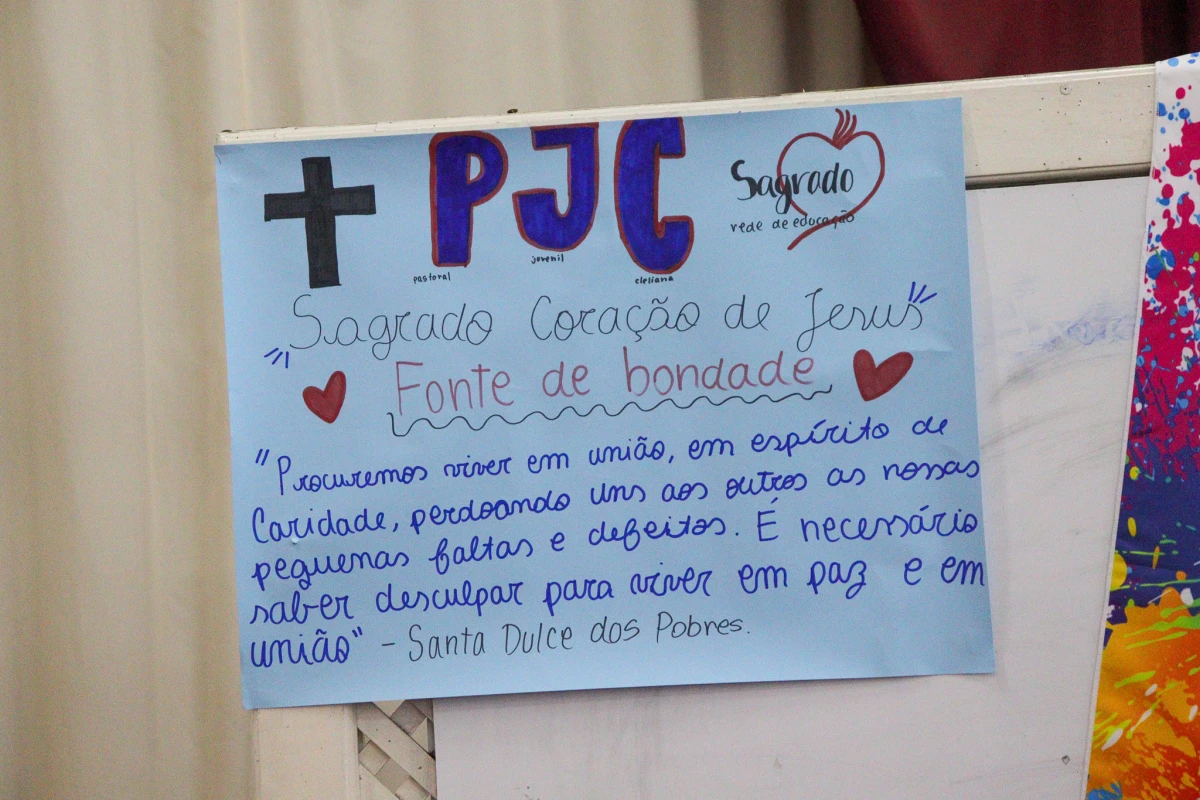 PJC
pastoral juvenil cleliana
Sagrado
rede de educação
Sagrado Coração de Jesus
Fonte de bondade
"Procuremos viver em união, em espírito de
Caridade, perdoando uns aos outros as nossas
pequenas faltas e defeitos. É necessário
saber desculpar para viver em paz e em
união" - Santa Dulce dos Pobres.